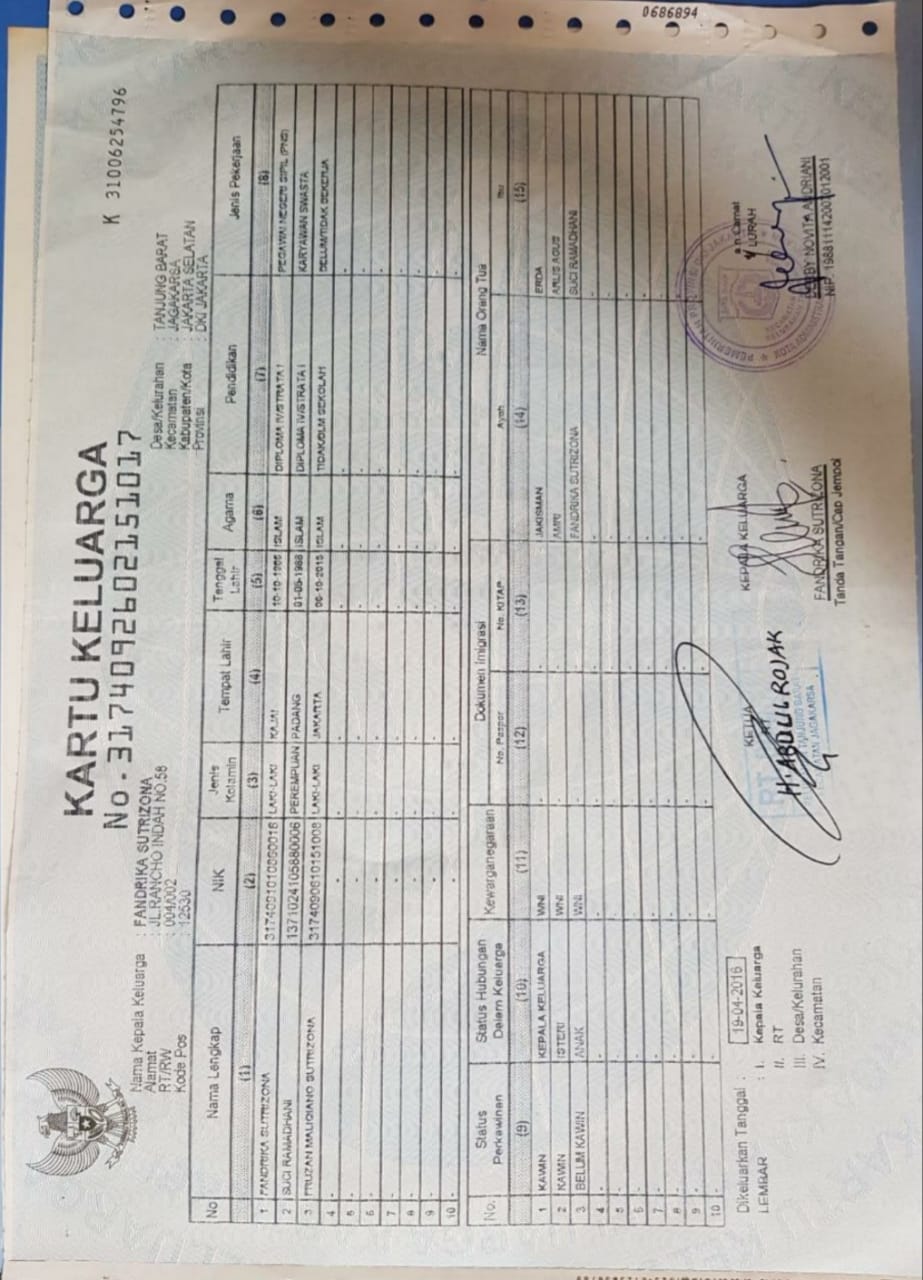 0686894
K 31006254796
KARTU KELUARGA
No. 3174092602151017
Nama Kepala Keluarga : FANDRIKA SUTRIZONA
Alamat : JL.RANCHO INDAH NO.58
RT/RW : 004/002
Kode Pos : 12530
Desa/Kelurahan : TANJUNG BARAT
Kecamatan : JAGAKARSA
Kabupaten/Kota : JAKARTA SELATAN
Provinsi : DKI JAKARTA
No Nama Lengkap NIK Jenis Kelamin Tempat Lahir Tanggal Lahir Agama Pendidikan Jenis Pekerjaan
(1) (2) (3) (4) (5) (6) (7) (8)
1 FANDRIKA SUTRIZONA LAKI-LAKI KAJAI ISLAM DIPLOMA IV/STRATA I PEGAWAI NEGERI SIPIL (PNS)
2 SUCI RAMADHANI 1371024105880006 PEREMPUAN PADANG 01-05-1988 ISLAM DIPLOMA IV/STRATA I KARYAWAN SWASTA
3 SUTRIZONA 3174090610151008 LAKI-LAKI JAKARTA 06-10-2015 ISLAM TIDAK/BLM SEKOLAH BELUM/TIDAK BEKERJA
4 - - - - - - - -
5 - - - - - - - -
6 - - - - - - - -
7 - - - - - - - -
8 - - - - - - - -
9 - - - - - - - -
10 - - - - - - - -
No. Status Perkawinan Status Hubungan Dalam Keluarga Kewarganegaraan Dokumen Imigrasi Nama Orang Tua
No. Paspor No. KITAP Ayah Ibu
(9) (10) (11) (12) (13) (14) (15)
1 KAWIN KEPALA KELUARGA WNI - - JAKISMAN ERDA
2 KAWIN ISTERI WNI - - AMRI ARLIS AGUS
3 BELUM KAWIN ANAK WNI - - FANDRIKA SUTRIZONA SUCI RAMADHANI
4 - - - - - - -
5 - - - - - - -
6 - - - - - - -
7 - - - - - - -
8 - - - - - - -
9 - - - - - - -
10 - - - - - - -
Dikeluarkan Tanggal : 19-04-2016
LEMBAR : I. Kepala Keluarga
II. RT
III. Desa/Kelurahan
IV. Kecamatan
KETUA RT
H.ABDUL ROJAK
KEPALA KELUARGA
FANDRIKA SUTRIZONA
Tanda Tangan/Cap Jempol
a n Camat
LURAH
NOVITA ANDRIANI
NIP.